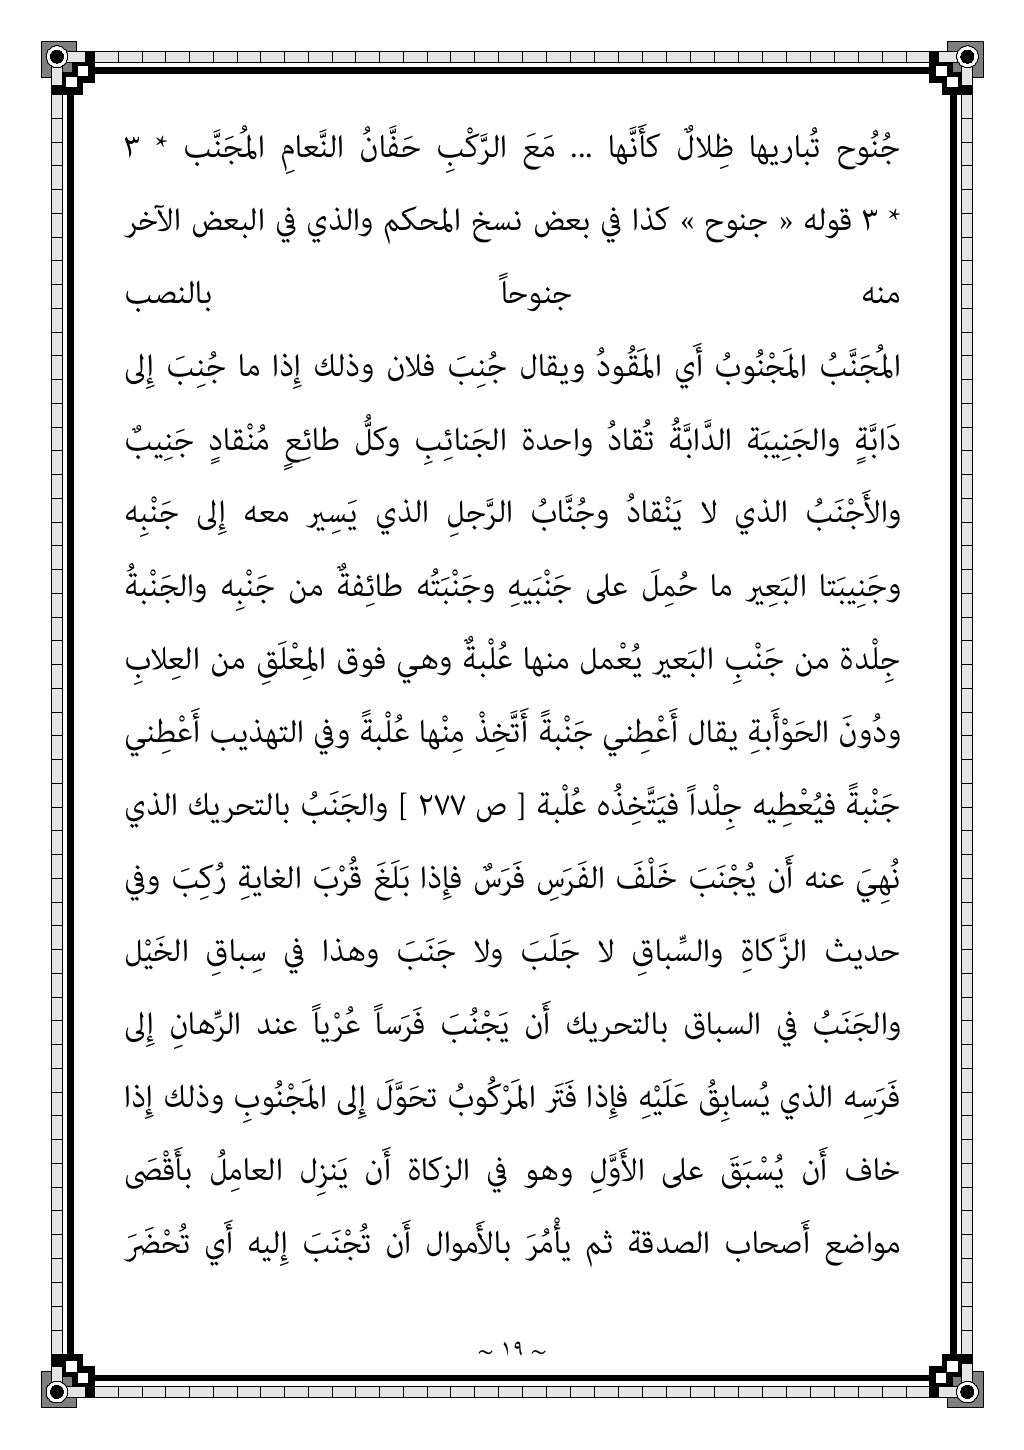 جُنُوح تُباريها ظِلالٌ كأَنَّها ... مَعَ الرَّكْبِ حَفَّانُ النَّعامِ المُجَنَّب * ٣
* ٣ قوله « جنوح » كذا في بعض نسخ المحكم والذي في البعض الآخر
منه جنوحاً بالنصب
المُجَنَّبُ المَجْنُوبُ أَي المَقُودُ ويقال جُنِبَ فلان وذلك إِذا ما جُنِبَ إِلى
دَابَّةٍ والجَنِيبَة الدَّابَّةُ تُقادُ واحدة الجَنائِبِ وكلُّ طائِعٍ مُنْقادٍ جَنِيبٌ
والأَجْنَبُ الذي لا يَنْقادُ وجُنَّابُ الرَّجلِ الذي يَسِير معه إِلى جَنْبِه
وجَنِيبَتا البَعِير ما حُمِلَ على جَنْبَيهِ وجَنْبَتُه طائِفةٌ من جَنْبِه والجَنْبةُ
جِلْدة من جَنْبِ البَعير يُعْمل منها عُلْبةٌ وهي فوق المِعْلَقِ من العِلابِ
ودُونَ الحَوْأَبةِ يقال أَعْطِني جَنْبةً أَتَّخِذْ مِنْها عُلْبةً وفي التهذيب أَعْطِني
جَنْبةً فيُعْطِيه جِلْداً فيَتَّخِذُه عُلْبة [ ص ٢٧٧ ] والجَنَبُ بالتحريك الذي
نُهِيَ عنه أَن يُجْنَبَ خَلْفَ الفَرَسِ فَرَسٌ فإِذا بَلَغَ قُرْبَ الغايةِ رُكِبَ وفي
حديث الزَّكاةِ والسِّباقِ لا جَلَبَ ولا جَنَبَ وهذا في سِباقِ الخَيْل
والجَنَبُ في السباق بالتحريك أَن يَجْنُبَ فَرَساً عُرْياً عند الرِّهانِ إِلى
فَرَسِه الذي يُسابِقُ عَلَيْهِ فإِذا فَتَر المَرْكُوبُ تحَوَّلَ إِلى المَجْنُوبِ وذلك إِذا
خاف أَن يُسْبَقَ على الأَوَّلِ وهو في الزكاة أَن يَنزِل العامِلُ بأَقْصَى
مواضع أَصحاب الصدقة ثم يأْمُرَ بالأَموال أَن تُجْنَبَ إِليه أَي تُحْضَرَ
~ ١٩ ~